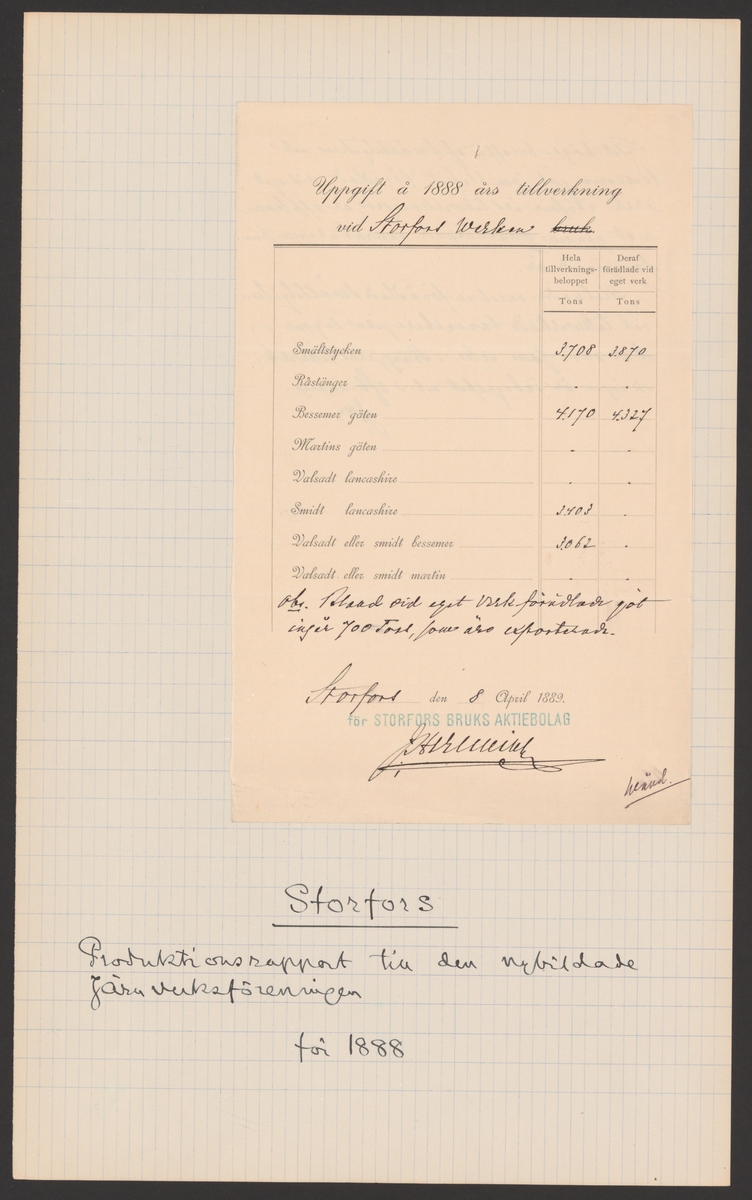 Uppgift å 1888 års tillverkning
vid Storfors Werken bruk.
Hela tillverknings-beloppet
Deraf förädlade vid eget verk
Tons Tons
Smältstycken 3.708 3.870
Råstänger - -
Bessemer göten 4.170 4.327
Martins göten - -
Valsadt lancashire - -
Smidt lancashire 3.403 -
Valsadt eller smidt bessemer 3.062 -
Valsadt eller smidt martin - -
Obs. Bland vid eget verk förädlade göt
ingår 700 Tons, som äro exporterade.
Storfors den 8 April 1889.
för STORFORS BRUKS AKTIEBOLAG
vänd.
Storfors
Produktionsrapport till den nybildade
Järnverksföreningen
för 1888